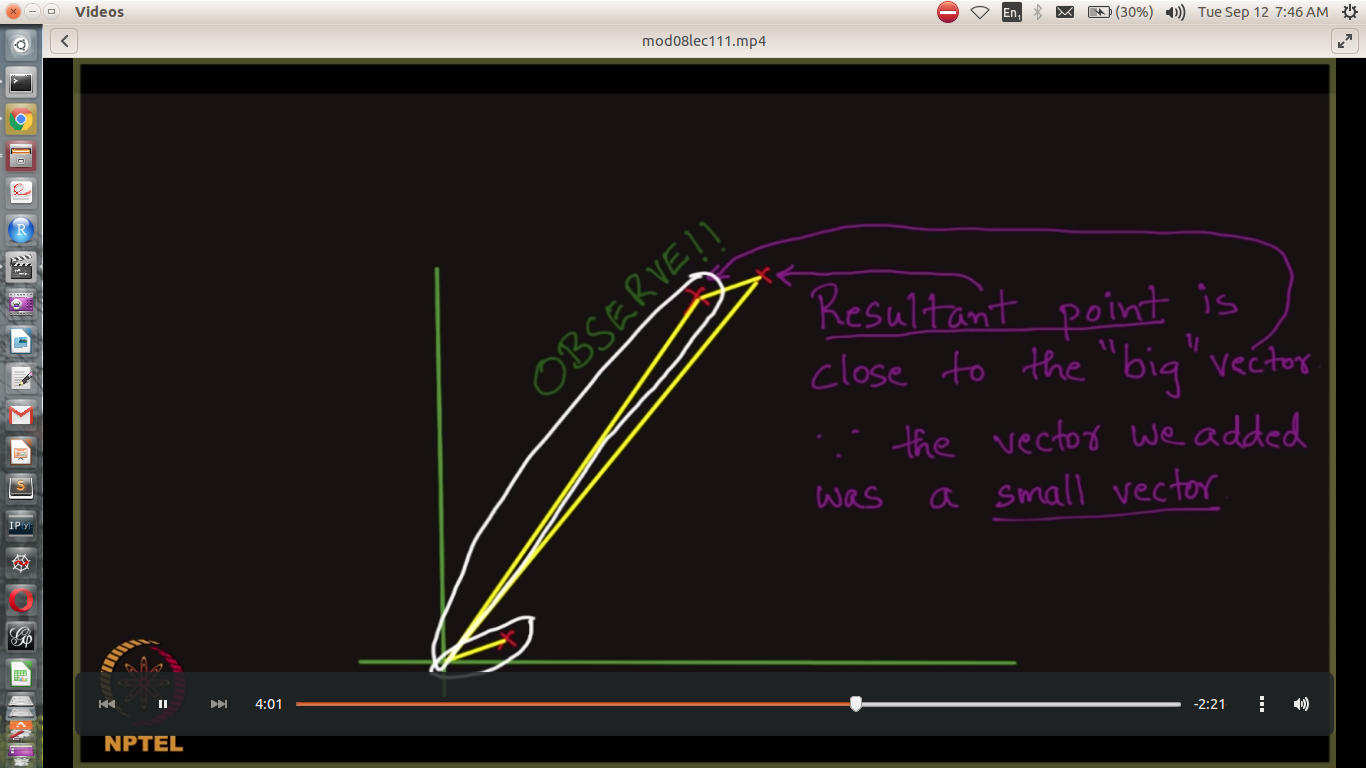 Videos
En1
(30%)
Tue Sep 12 7:46 AM
mod08lec111.mp4
OBSERVE!!
Resultant point is
close to the "big" vector
∵ the vector we added
was a small vector.
4:01
-2:21
NPTEL
R
S
IP[y]:
Gp